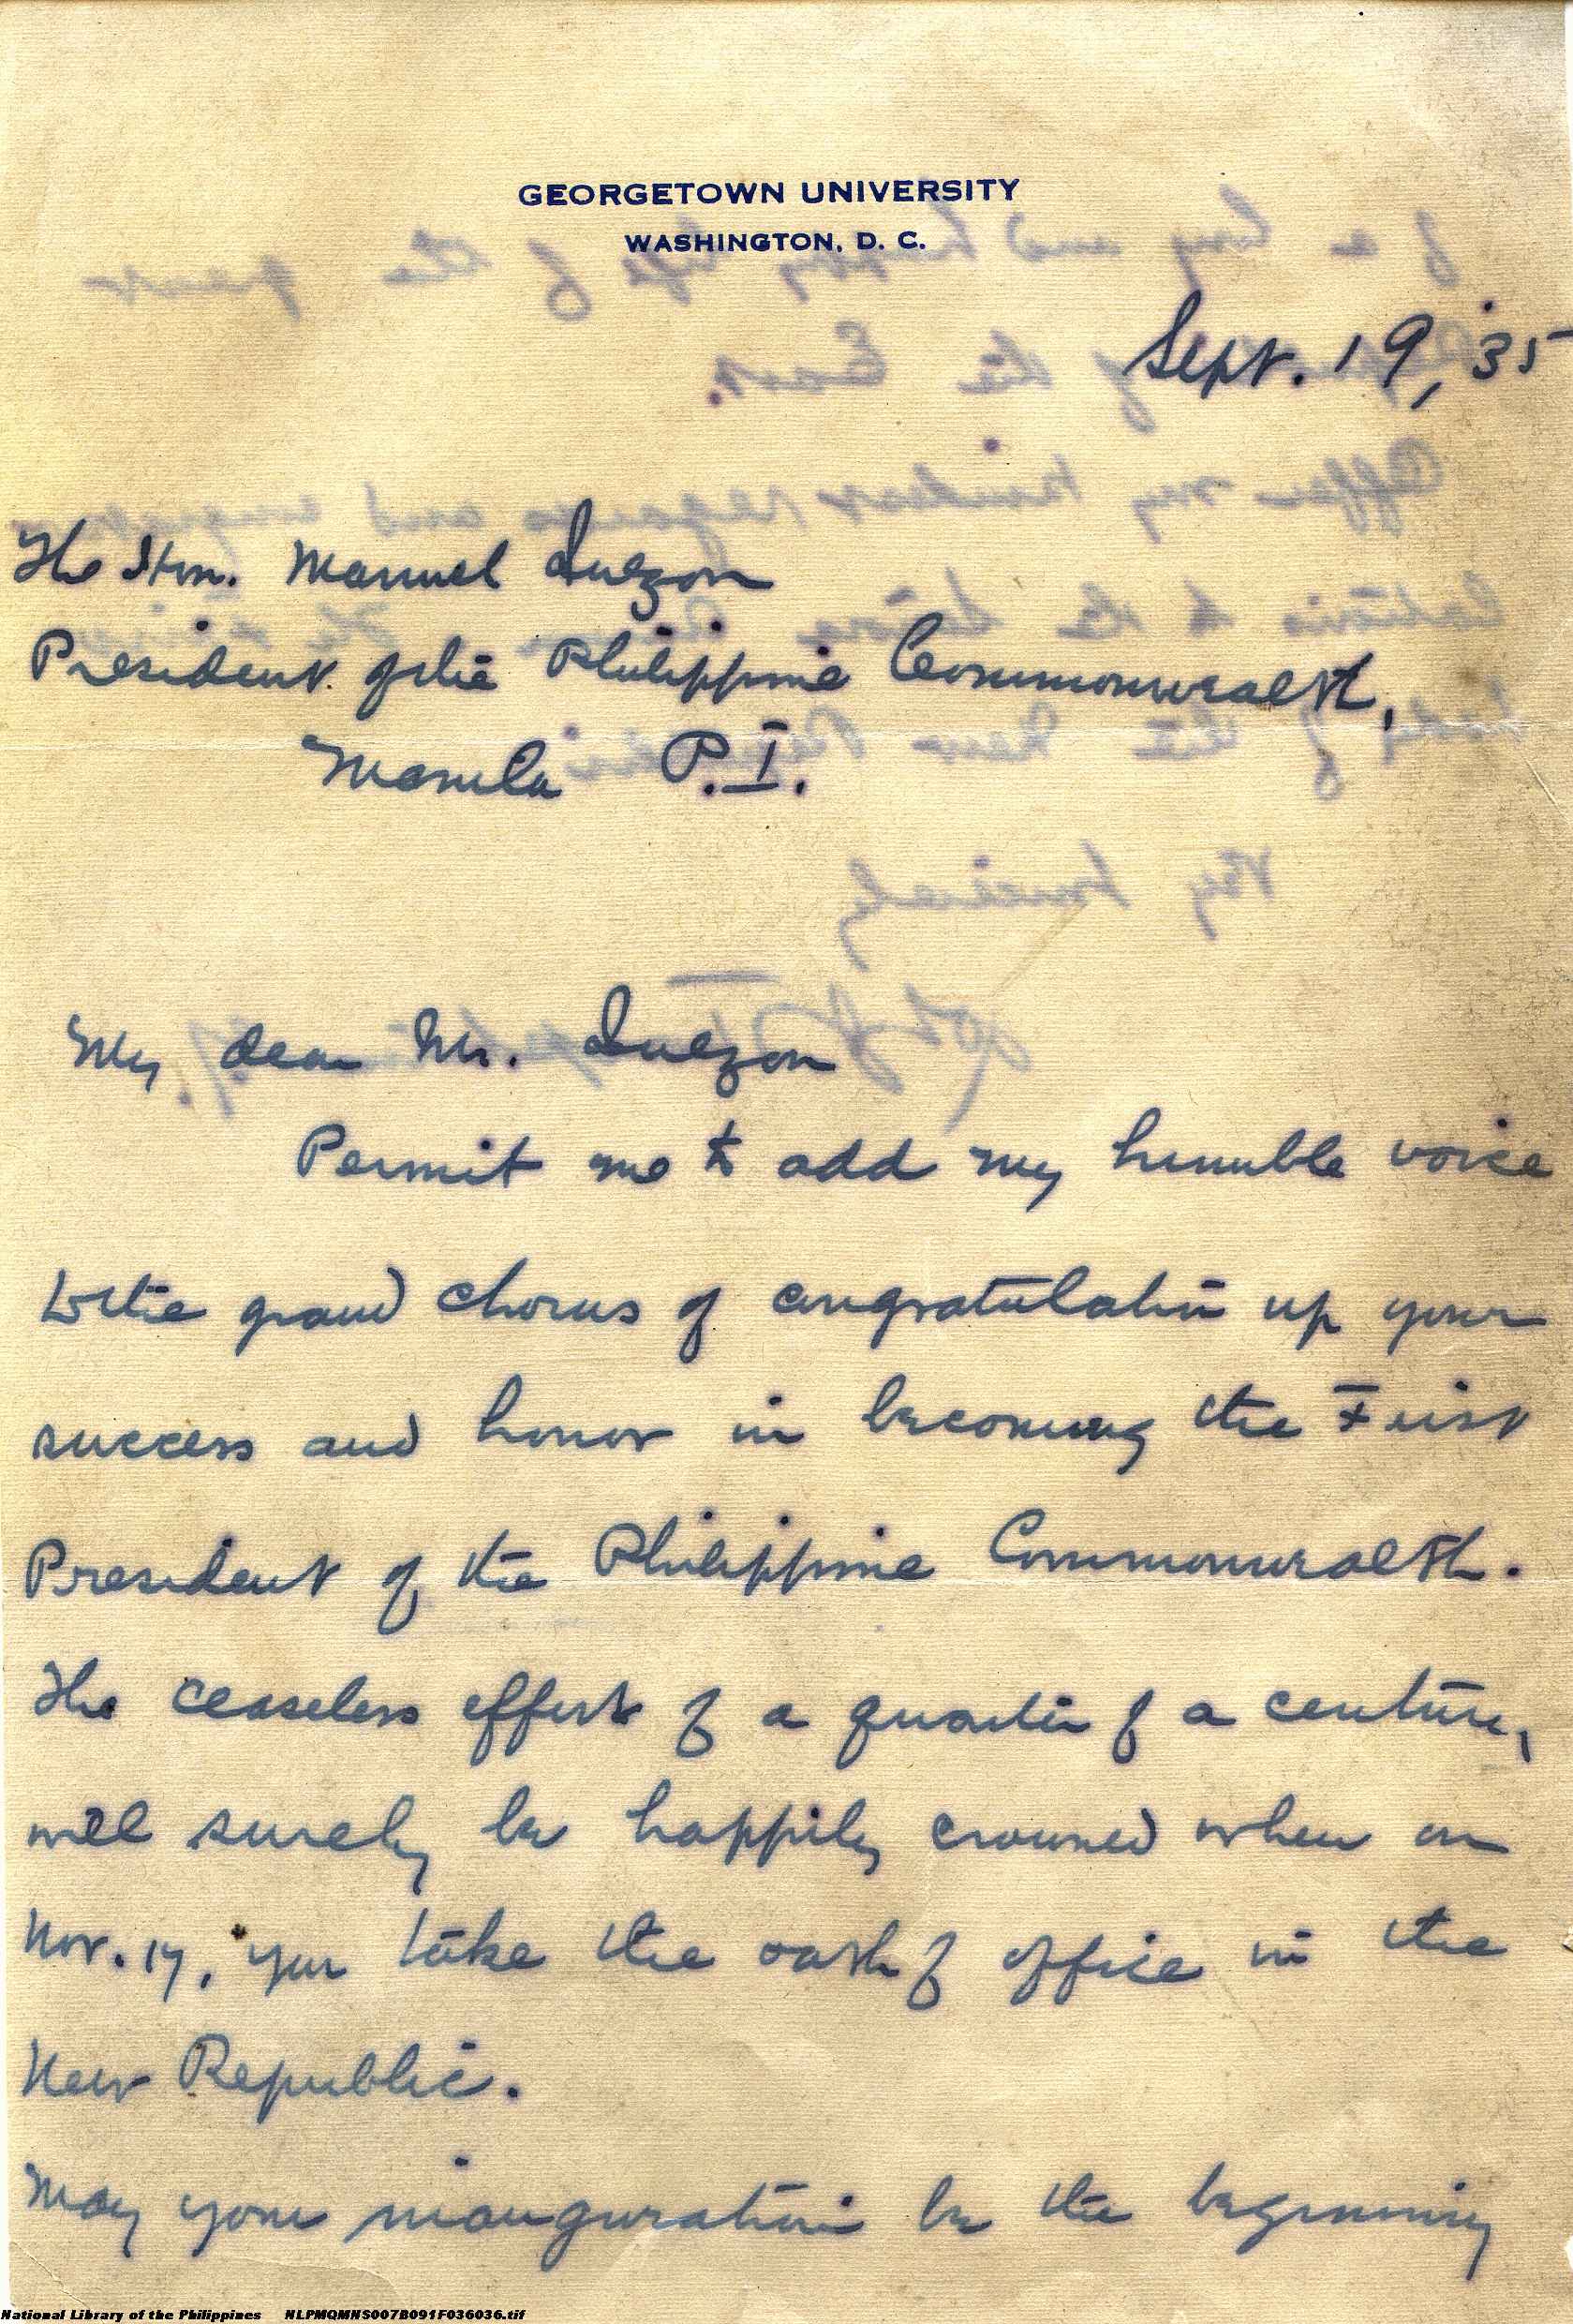 GEORGETOWN UNIVERSITY
WASHINGTON, D. C.
Sept. 19, '35
The Hon. Manuel Quezon
President of the Philippine Commonwealth,
Manila P.I.
My dear Mr. Quezon
Permit me to add my humble voice
to the grand chorus of congratulation up your
success and honor in becoming the First
President of the Philippine Commonwealth.
The ceaseless effort of a quarter of a century,
will surely be happily crowned when on
Nov. 17, you take the oath of office in the
New Republic.
May your inauguration be the beginning
National Library of the Philippines NLPMQMNS007B091F036036.tif